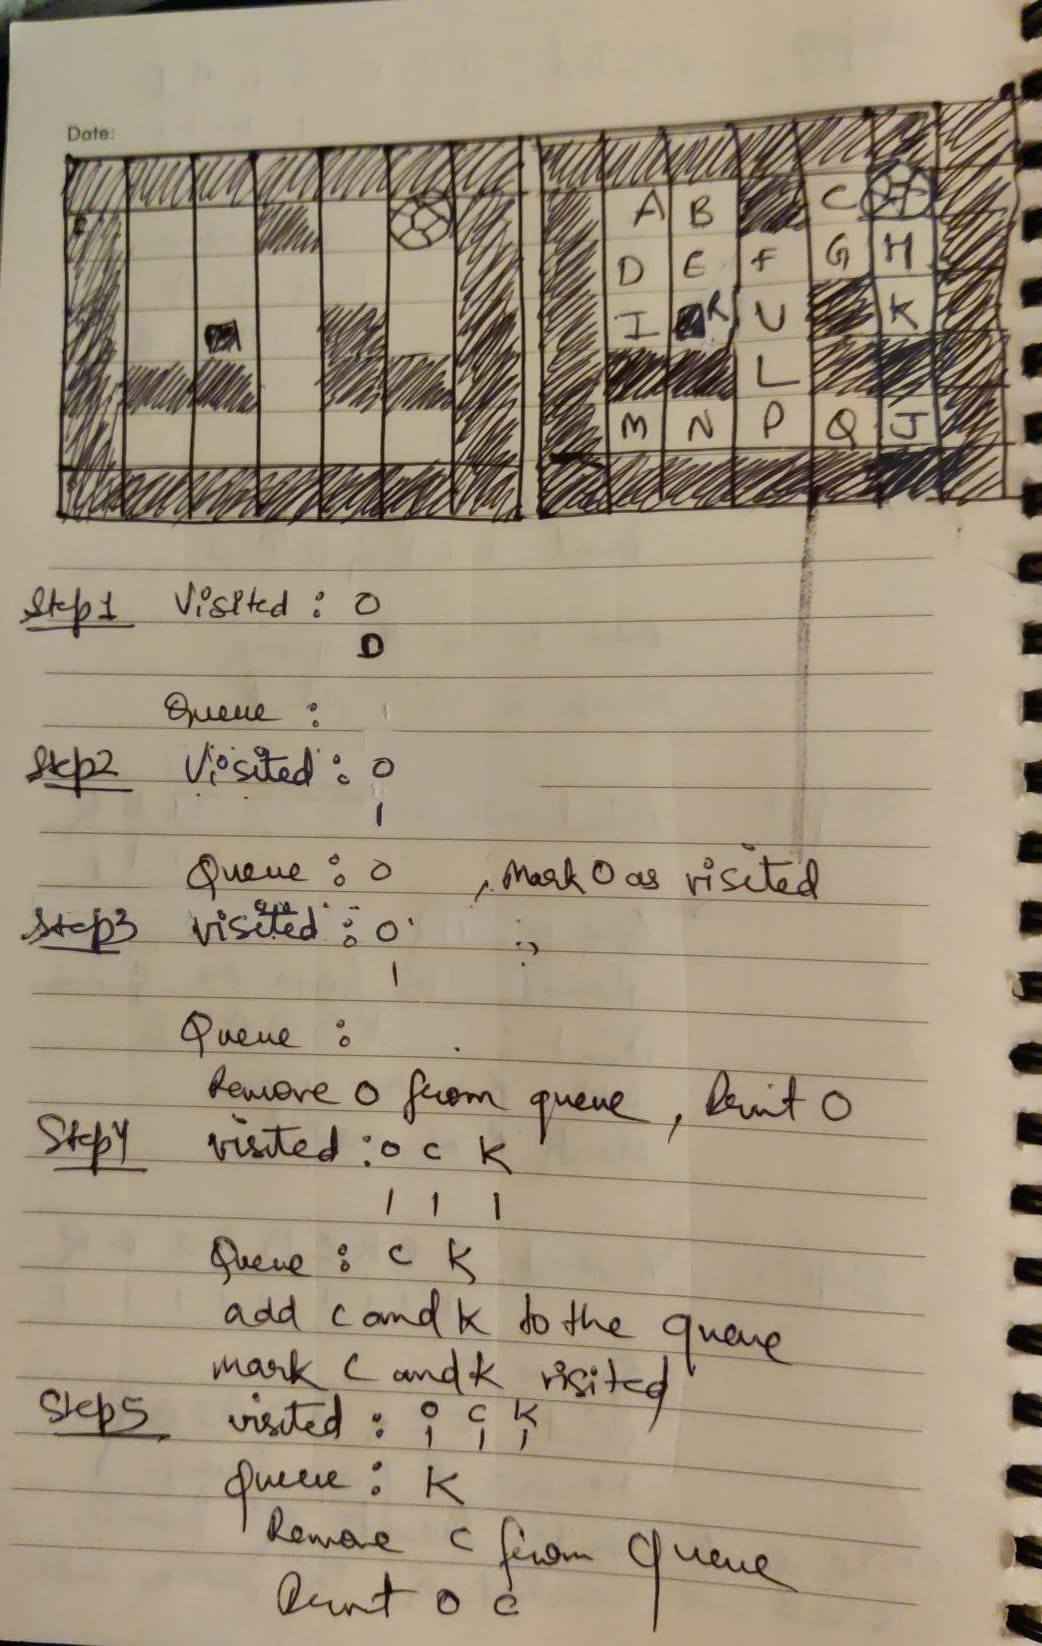 Date:
A B C
D E F G H
I R U K
L
M N P Q J
Step1 Visited : O
0
Queue :
Step2 Visited : O
1
Queue : O , Mark O as visited
Step3 visited : O
1
Queue :
Remove O from queue, Print O
Step4 visited : O C K
1 1 1
Queue : C K
add C and K to the queue
mark C and K visited
Step5 visited : O C K
1 1 1
queue : K
Remove C from Queue
Print O C